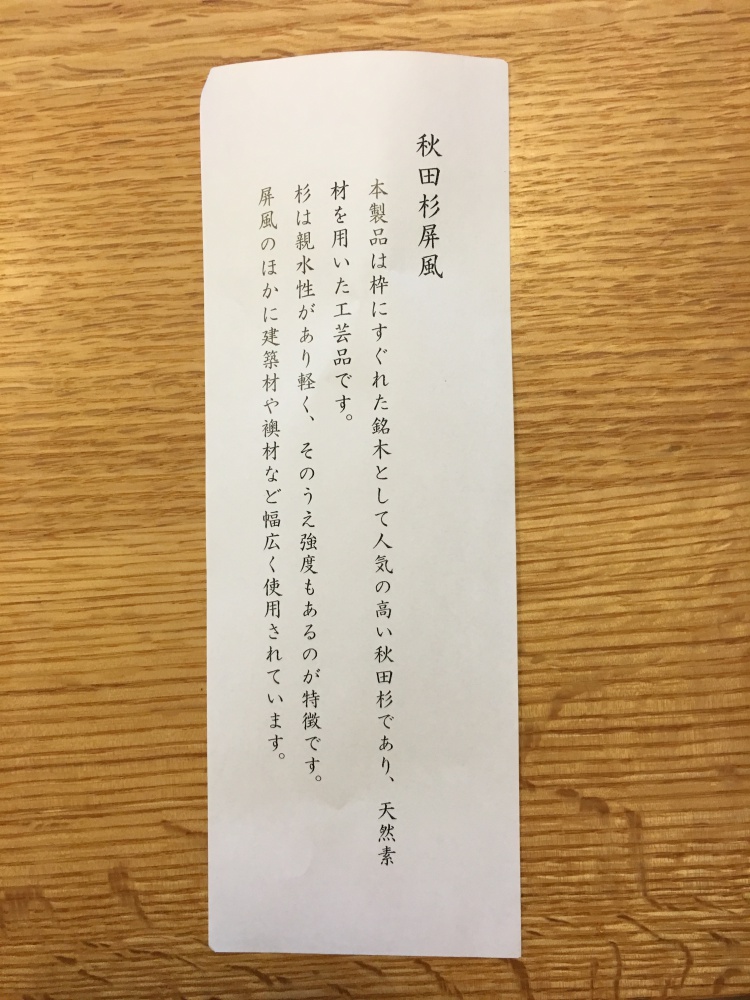 秋田杉屏風
本製品は枠にすぐれた銘木として人気の高い秋田杉であり、天然素
材を用いた工芸品です。
杉は親水性があり軽く、そのうえ強度もあるのが特徴です。
屏風のほかに建築材や襖材など幅広く使用されています。